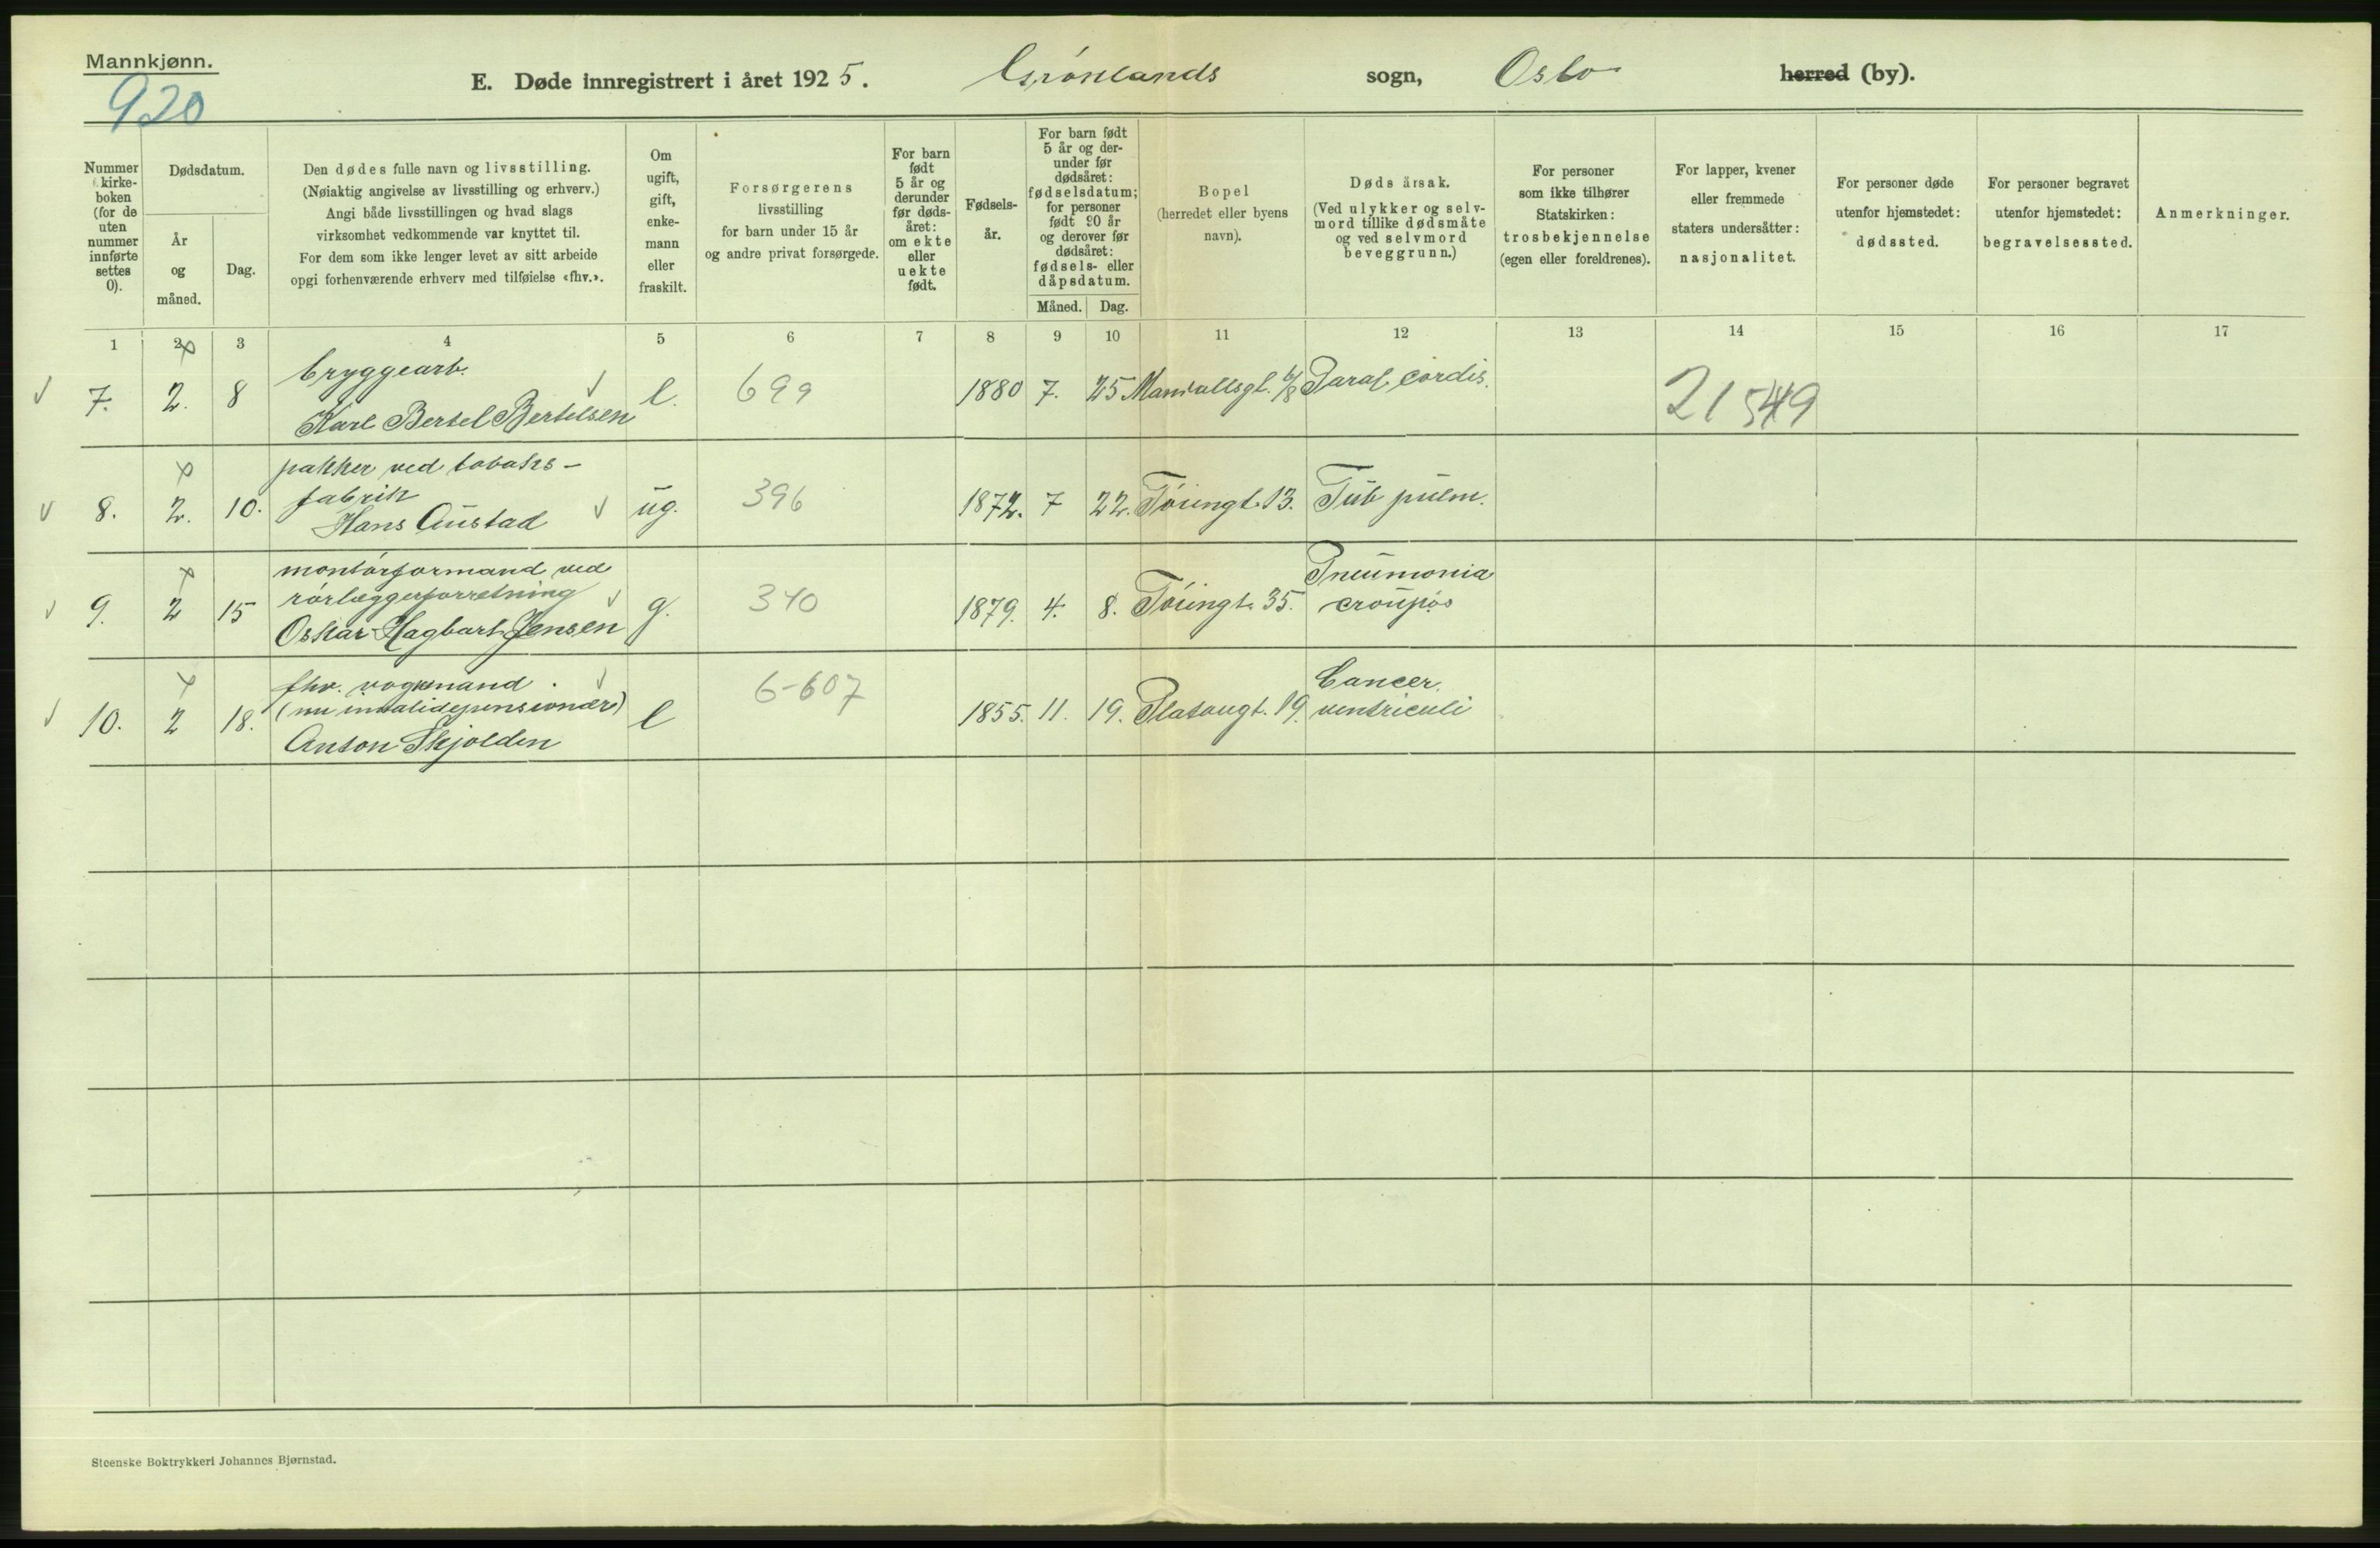 Mannkjønn.
920
E. Døde innregistrert i året 1925. Grønlands sogn, Oslo herred (by).
Nummer
kirke-
boken
(for de
uten
nummer
innførte
settes
0).
Dødsdatum.
År
og
måned.
Dag.
Den dødes fulle navn og livsstilling.
(Nøiaktig angivelse av livsstilling og erhverv.)
Angi både livsstillingen og hvad slags
virksomhet vedkommende var knyttet til.
For dem som ikke lenger levet av sitt arbeide
opgi forhenværende erhverv med tilføielse «fhv.».
Om
ugift,
gift,
enke-
mann
eller
fraskilt.
Forsørgerens
livsstilling
for barn under 15 år
og andre privat forsørgede.
For barn
født
5 år og
derunder
før døds-
året:
om ekte
eller
uekte
født.
Fødsels-
år.
For barn født
5 år og der-
under før
dødsåret:
fødselsdatum;
for personer
født 90 år
og derover før
dødsåret:
fødsels- eller
dåpsdatum.
Måned. Dag.
Bopel
(herredet eller byens
navn).
Dødsårsak.
(Ved ulykker og selv-
mord tillike dødsmåte
og ved selvmord
beveggrunn.)
For personer
som ikke tilhører
Statskirken:
trosbekjennelse
(egen eller foreldrenes).
For lapper, kvener
eller fremmede
staters undersåtter:
nasjonalitet.
For personer døde
utenfor hjemstedet:
dødssted.
For personer begravet
utenfor hjemstedet:
begravelsessted.
Anmerkninger.
1 2 3 4 5 6 7 8 9 10 11 12 13 14 15 16 17
bryggearb.
7. 2. 8 e. 699 1880 7. 25 6/8 Paral. cordis. 21549
Karl Bertel Bertelsen
pakker ved tobaks-
fabrik
8. 2. 10. ug. 396 1872. 7 22. Tøiengt. 13. Tub pulm.
Hans Austad
montørformand ved
rørlæggerforretning
9. 2 15 g. 340 1879. 4. 8. Tøiengt. 35. Pneumonia
croupøs
Oskar Hagbart Jensen
fhv. vognmand
(nu invalidepensionær)
10. 2 18. e 6-607 1855. 11. 19. Platougt. 19. Cancer
ventriculi
Anton Skjolden
Steenske Boktrykkeri Johannes Bjørnstad.